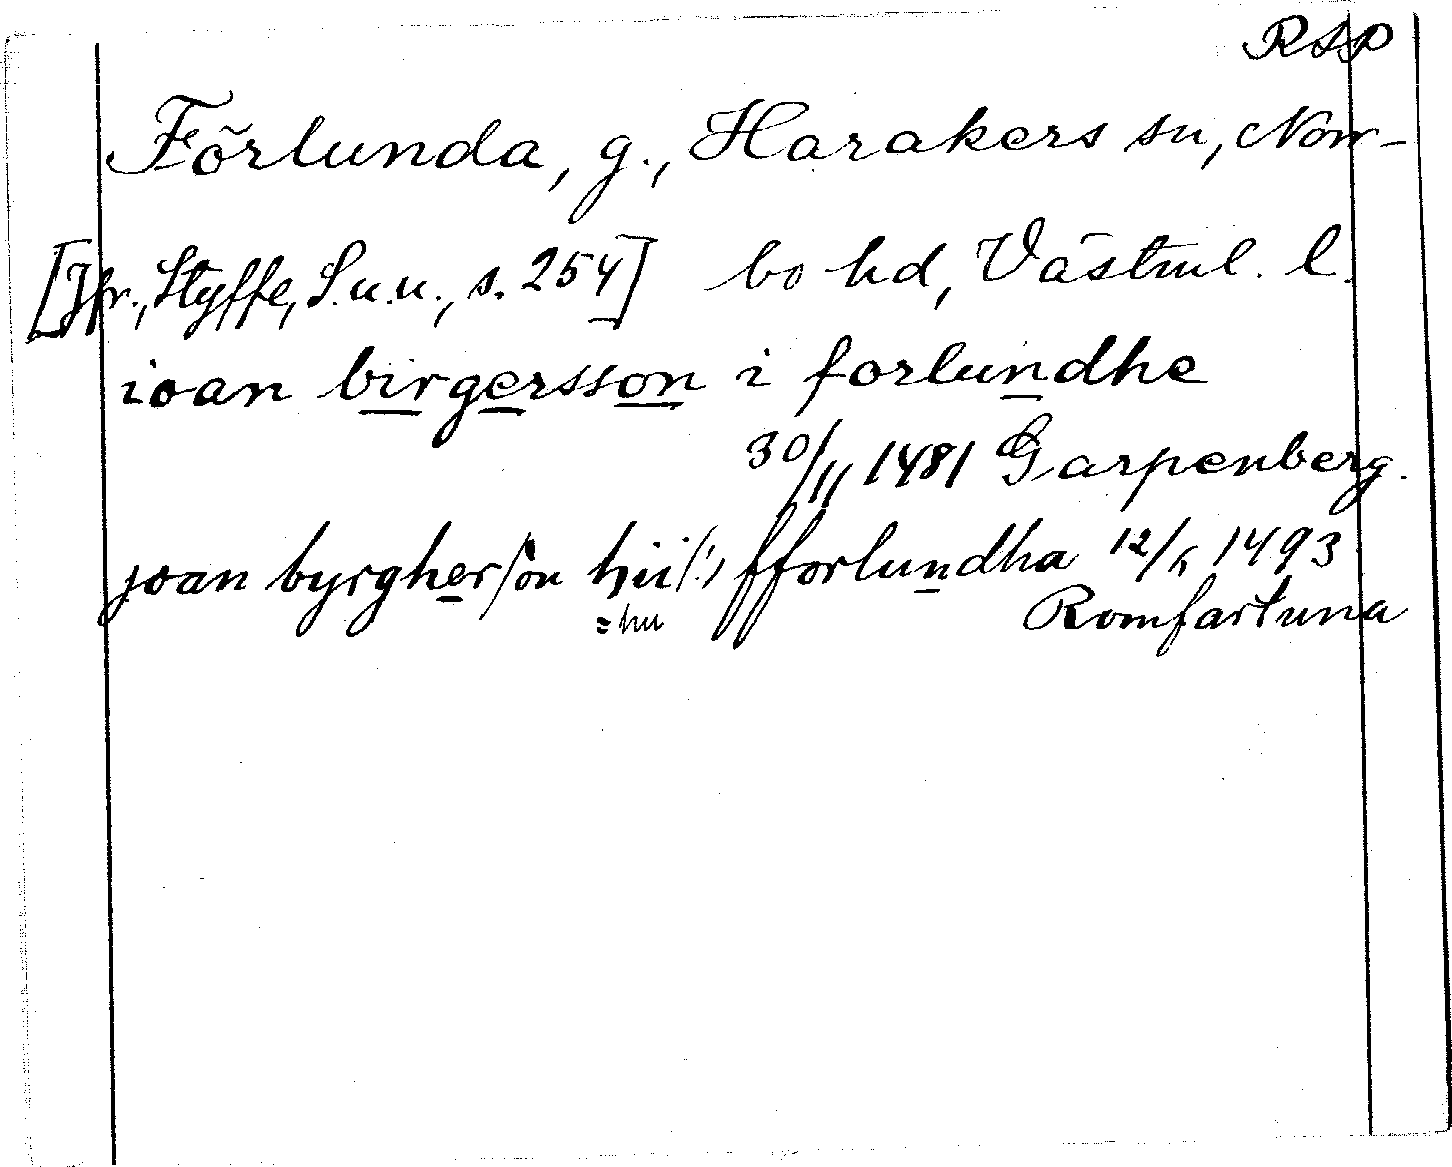 RSP
Förlunda, g., Harakers sn, Norr-
[Jfr., Styffe, S.u.u., s. 254] bo hd, Västml. l.
ioan birgersson i forlundhe
30/11 1481 Garpenberg.
joan byrgherſon fforlundha 12/5 1493
=hu Romfartuna